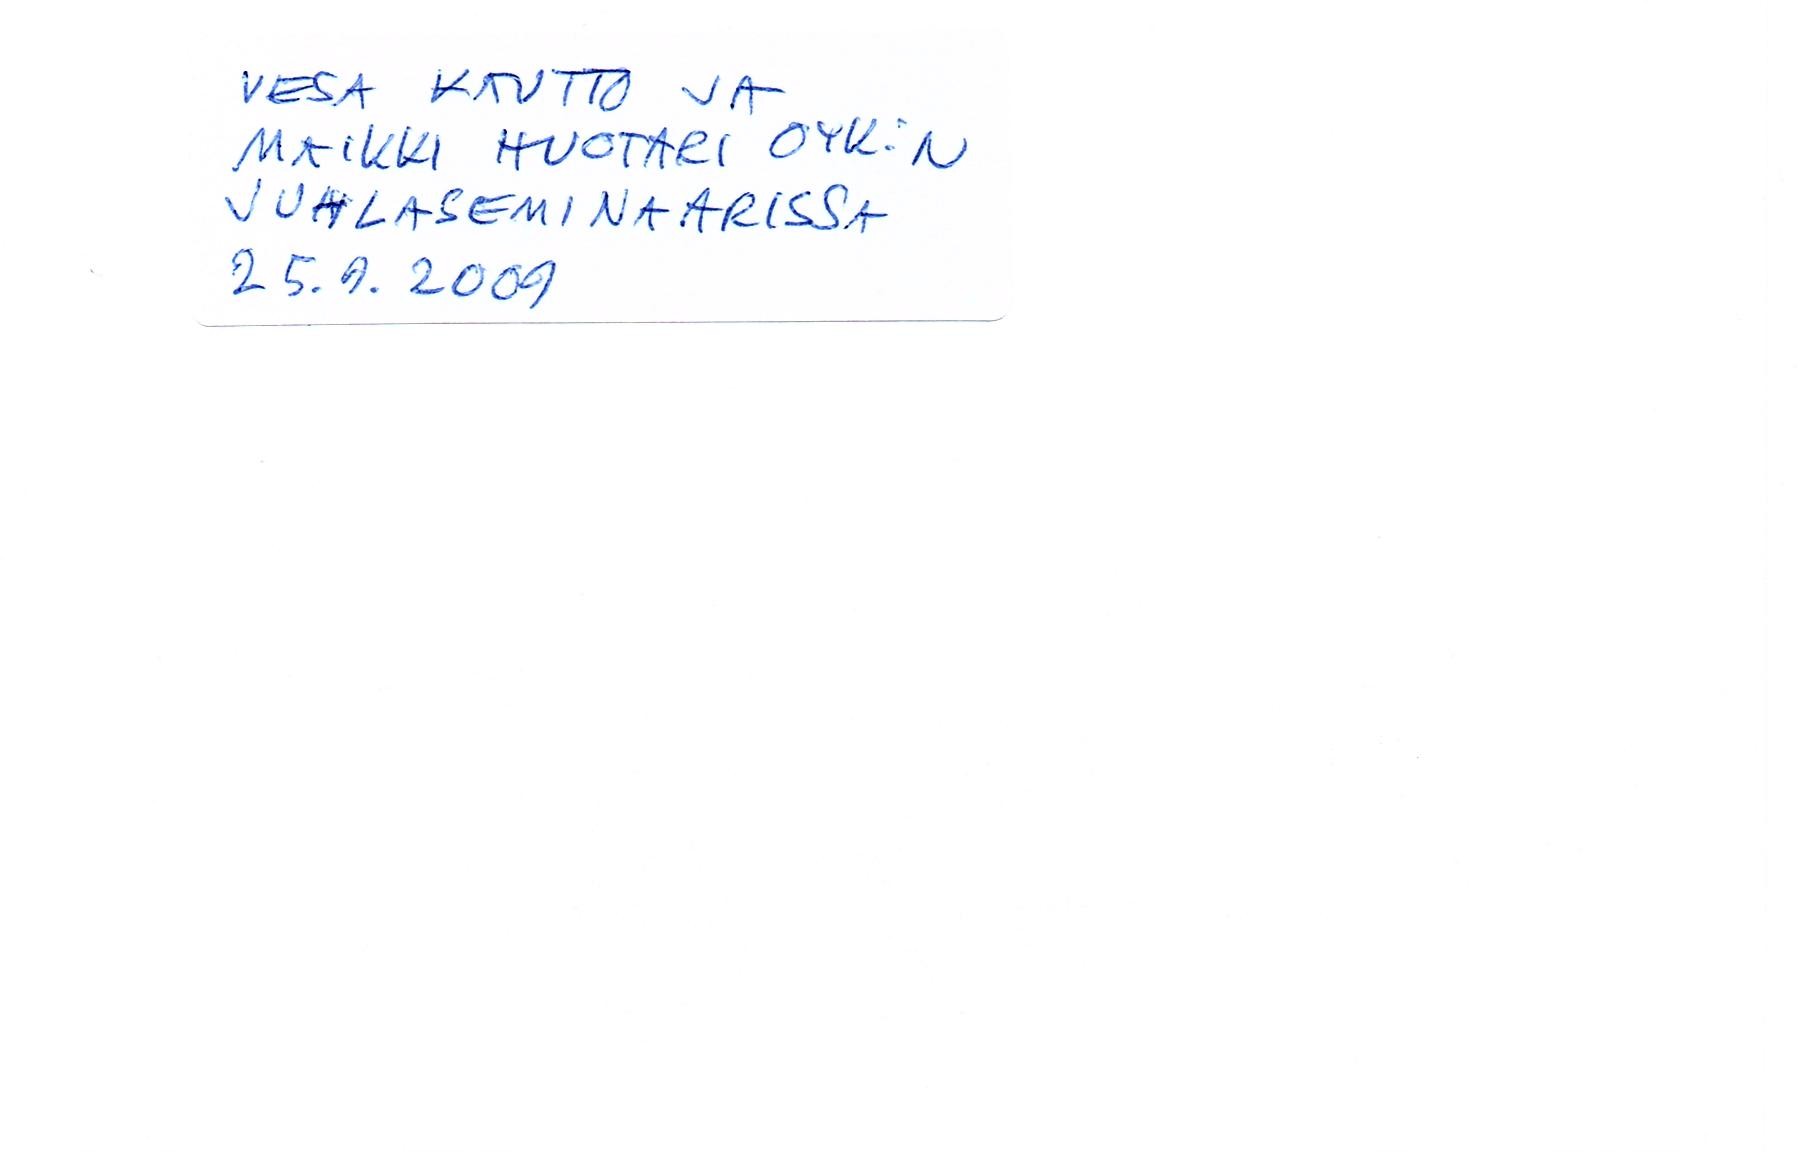 VESA KAUTTO JA
MAIKKI HUOTARI OYK:N
JUHLASEMINAARISSA
25.9.2009